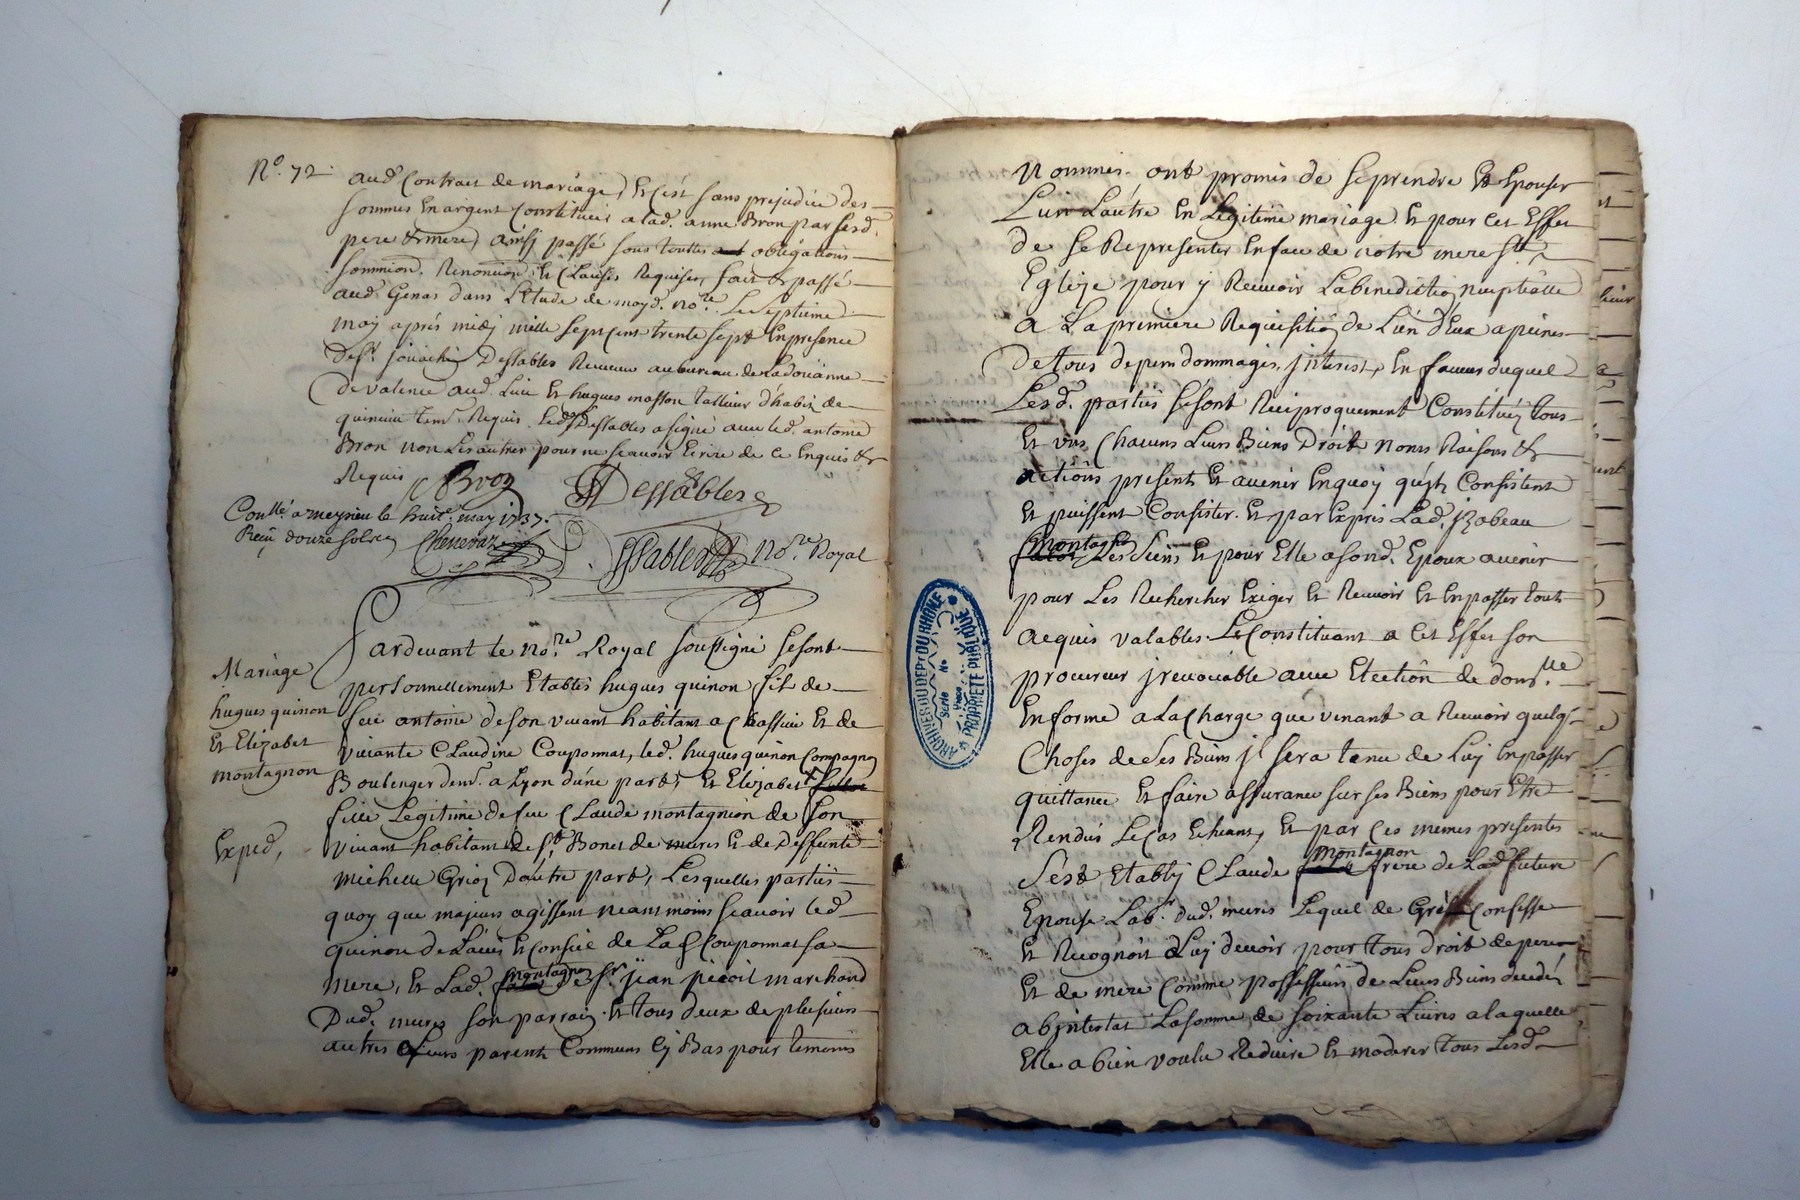 N.º 72
aud. Contrait de mariage, Et C'est sans prejudice des
sommes En argent Constituées a lad. anne Bron par sesd.
pere & mere, ainsi passé sous touttes obligations
sommion. Renontion Et Clauses Requises, fait & passé
aud. Genas dans L'Etude de moyd. no.re Le septieme
may aprés midy mille sept Cent trente sept En presence
de s.r Jouachi Dessables Receveur au bureau de La doüanne
de valence aud. Lieu Et hugues masson tallieur d'habit de
quincieu tem. Requis. Led. Dessables a signé avec led. antoine
Bron non Les autres pour ne scavoir Ecrire de Ce Enquis &
Requis Bron Dessables
Con.llé a meyzieu le huit.e may 1737.
Reçu douze sols Chenevaz
Dessables No.re Royal
Mariage
hugues quinon
Et Elizabet
montagnon
Exped,
Pardevant le no.re Royal soussigné se sont
personnellement Etablis hugues quinon fils de
feu antoine de son vivant habitant a Chassieu Et de
vivante Claudine Couponnat, led. hugues quinon Compagnon
Boulenger dem.t a Lyon d'une part, Et Elizabet
fille Legitime de feu Claude montagnion de son
vivant habitant de s.t Bonet de mures Et de deffunte
michelle Grioz D'autre part, Lesquelles parties
quoy que majeurs agissent neantmoins scavoir led.
quinon de L'avis Et Conseil de La d. Couponnat sa
mere, Et Lad. montagnon de s.r jean picoit marchand
Dud. mures son parrain. Et tous deux de plusieurs
autres Leurs parents Communs Cy Bas pour temoins
Nommés. ont promis de se prendre Et Epouser
L'un L'autre En Legitime mariage. Et pour Cet Effet
de se Representer En face de notre mere s.te
Eglize pour y Recevoir La benediction nuptialle
a La premiere Requisition de L'un d'Eux a peines
de tous depens dommages, jnterest, En faveur duquel
Lesd. parties se sont Reciproquement Constitués tous
Et uns Chacuns Leurs Biens Droits noms Raisons &
actions presents Et avenir En quoy qu'jls Consistent
Et puissent Consister. Et par Exprés Lad. jzabeau
montagnon Les Siens Et pour Elle a sond. Epoux avenir
pour Les Rechercher Exiger Et Recevoir Et En passer touts
acquis valables. Le Constituant a Cet Effet son
procureur jrrevocable avec Election de dom.lle
En forme a La Charge que venant a Recevoir quelq.
Choses de Ses Biens jl sera tenu de Luy En passer
quittance Et faire assurance sur ses Biens pour Etre
Rendus Le Cas Echeant, Et par Ces memes presentes
S'est Etably Claude montagnon frere de Lad. future
Epouse Lab.r dud. mures Lequel de Gré Confesse
Et Recognoit Luy devoir pour tous droit de pere
Et de mere Comme possesseur de Leurs Biens decedés
ab jntestat La somme de soixante Livres a laquelle
Elle a bien voulu Reduire Et moderer tous Lesd.
ARCHIVES DU DEPT DU RHÔNE
SERIE No
PROPRIÉTÉ PUBLIQUE